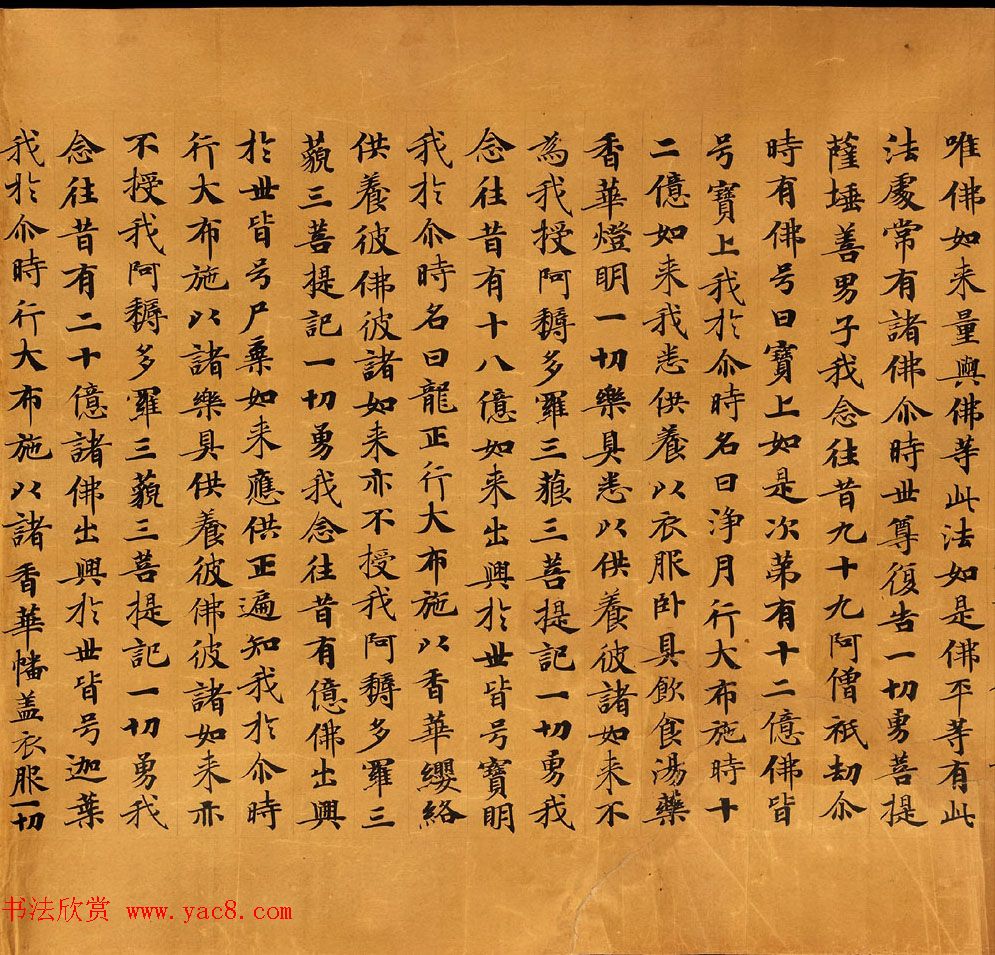 唯佛如来量與佛等此法如是佛平等有此
法處常有諸佛尒時世尊復告一切勇菩提
薩埵善男子我念往昔九十九阿僧祇劫尒
時有佛号曰寶上如是次第有十二億佛皆
号寶上我於尒時名曰淨月行大布施時十
二億如来我悉供養以衣服卧具飲食湯藥
香華燈明一切樂具悉以供養彼諸如来不
為我授阿耨多羅三藐三菩提記一切勇我
念往昔有十八億如来出興於世皆号寶明
我於尒時名曰龍正行大布施以香華纓絡
供養彼佛彼諸如来亦不授我阿耨多羅三
藐三菩提記一切勇我念往昔有億佛出興
於世皆号尸棄如来應供正遍知我於尒時
行大布施以諸樂具供養彼佛彼諸如来亦
不授我阿耨多羅三藐三菩提記一切勇我
念往昔有二十億諸佛出興於世皆号迦葉
我於尒時行大布施以諸香華幡盖衣服一切
书法欣赏 www.yac8.com